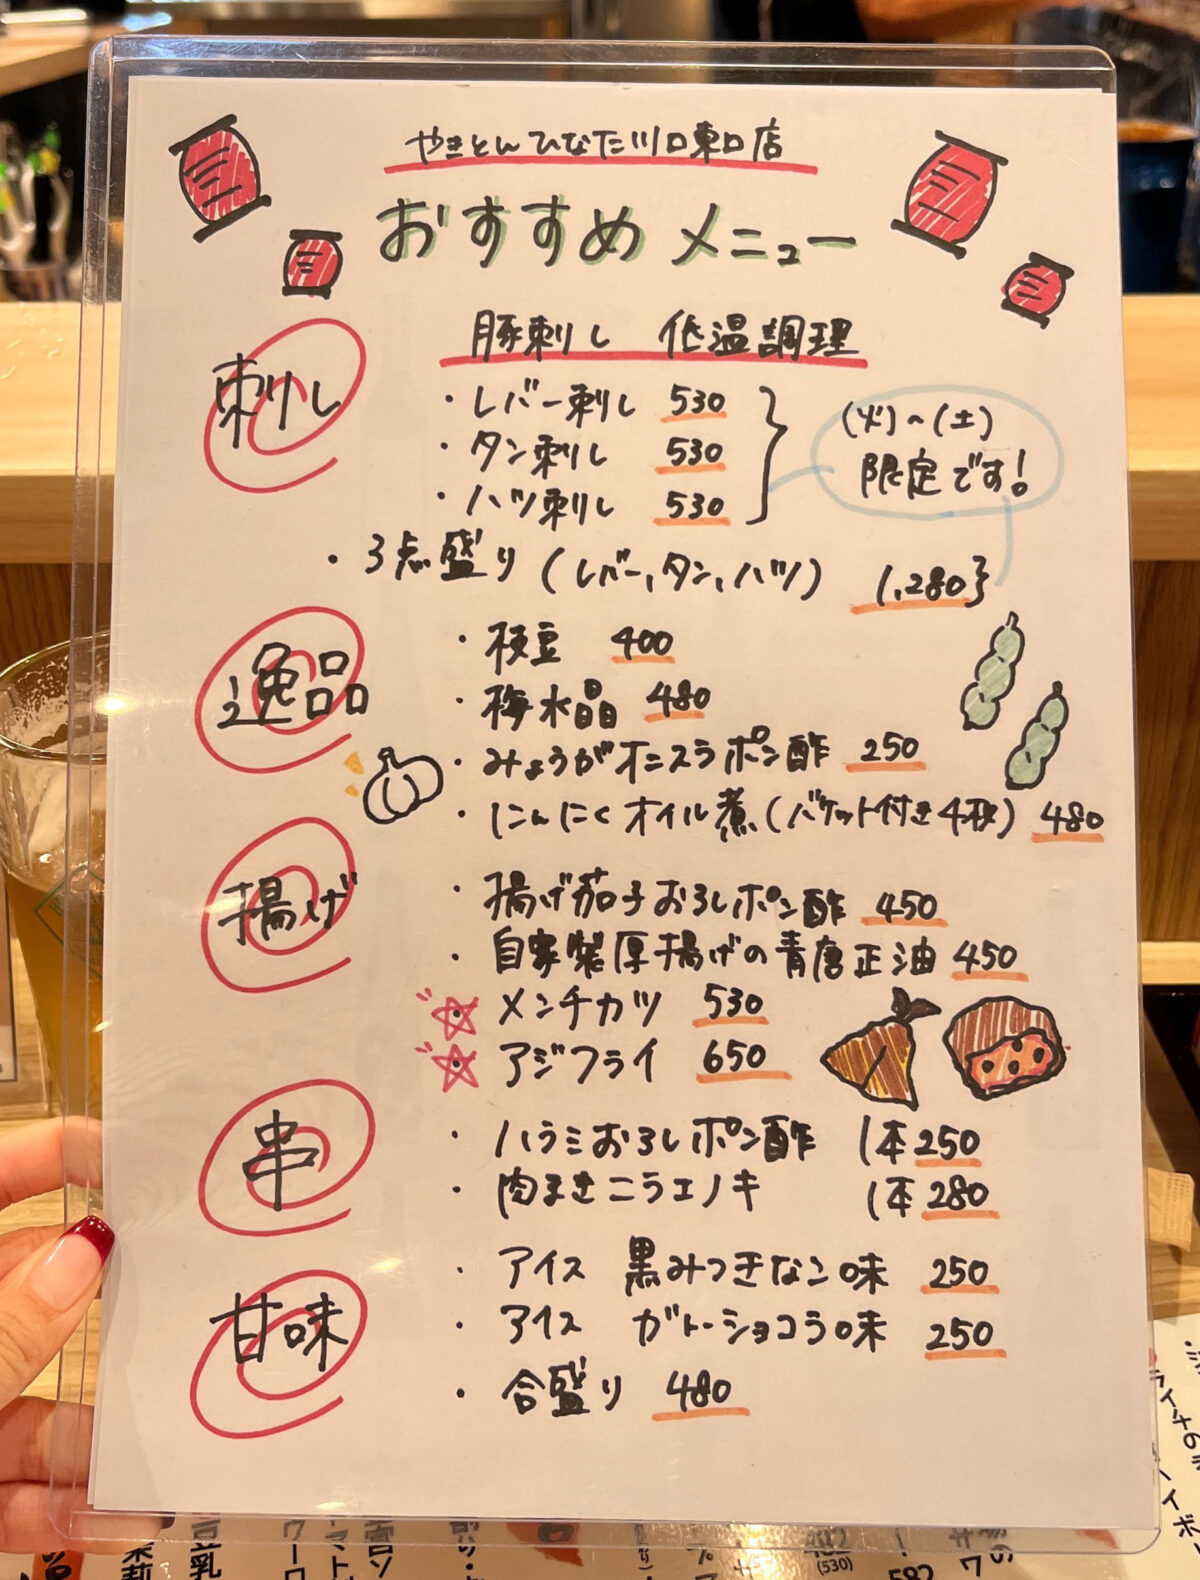 やきとんひなた川口東口店
おすすめメニュー
刺し
豚刺し 低温調理
・レバー刺し 530
・タン刺し 530
・ハツ刺し 530
(火)~(土)
限定です!
・3点盛り(レバー,タン,ハツ) 1,280
逸品
・枝豆 400
・梅水晶 480
・みょうがオニスラポン酢 250
・にんにくオイル煮(バケット付き4枚) 480
揚げ
・揚げ茄子おろしポン酢 450
・自家製厚揚げの青唐正油 450
・メンチカツ 530
・アジフライ 650
串
・ハラミおろしポン酢 1本250
・肉まきニラエノキ 1本280
甘味
・アイス 黒みつきなこ味 250
・アイス ガトーショコラ味 250
・合盛り 480
(530)
582